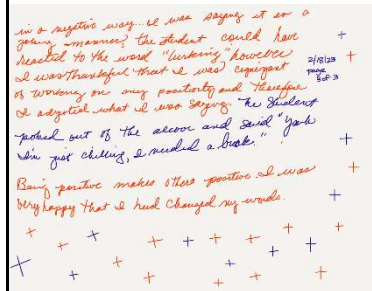 in a negative way... I was saying it in a
joking manner, the student could have
reacted to the word "lurking" however
I was thankful that I was cognizant
of working on my positivity and therefore
I adjusted what I was saying. The student
poked out of the alcove and said "Yeah
I'm just chilling, I needed a break."
Being positive makes others positive I was
very happy that I had changed my words.
2/8/23
page
3 of 3